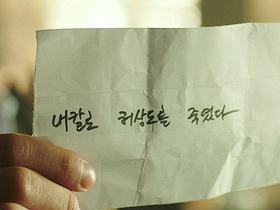 내칼로 허상도를 죽였다